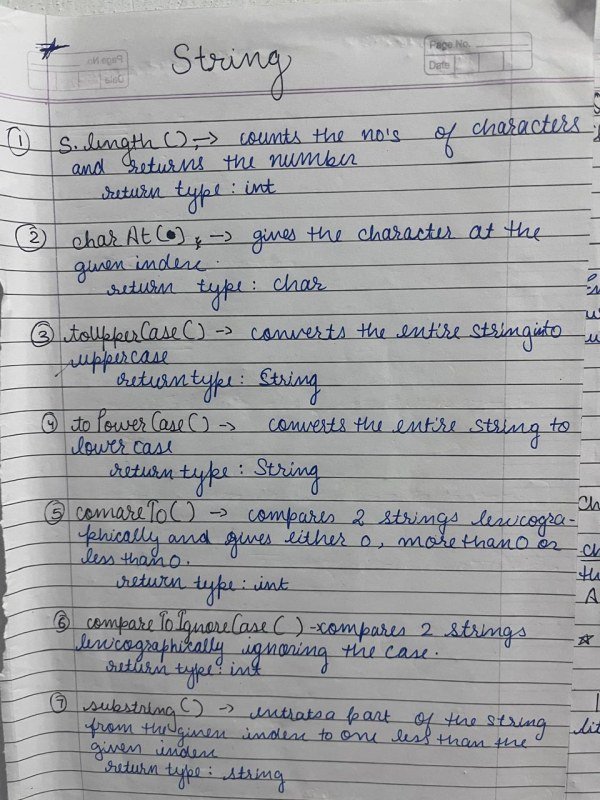 Page No.
Date
String
① S.length(); → counts the no's of characters
and returns the number
return type : int
② charAt( ); → gives the character at the
given index.
return type : char
③ toUpperCase() → converts the entire string into
uppercase
return type : String
④ to Power Case() → converts the entire string to
lower case
return type : String
⑤ comareTo() → compares 2 strings lexicogra-
phically and gives either 0, more than 0 or
less than 0.
return type : int
⑥ compareToIgnoreCase() - compares 2 strings
lexicographically ignoring the case.
return type : int
⑦ substring() → a part of the string
from the given index to one less than the
given index
return type : string